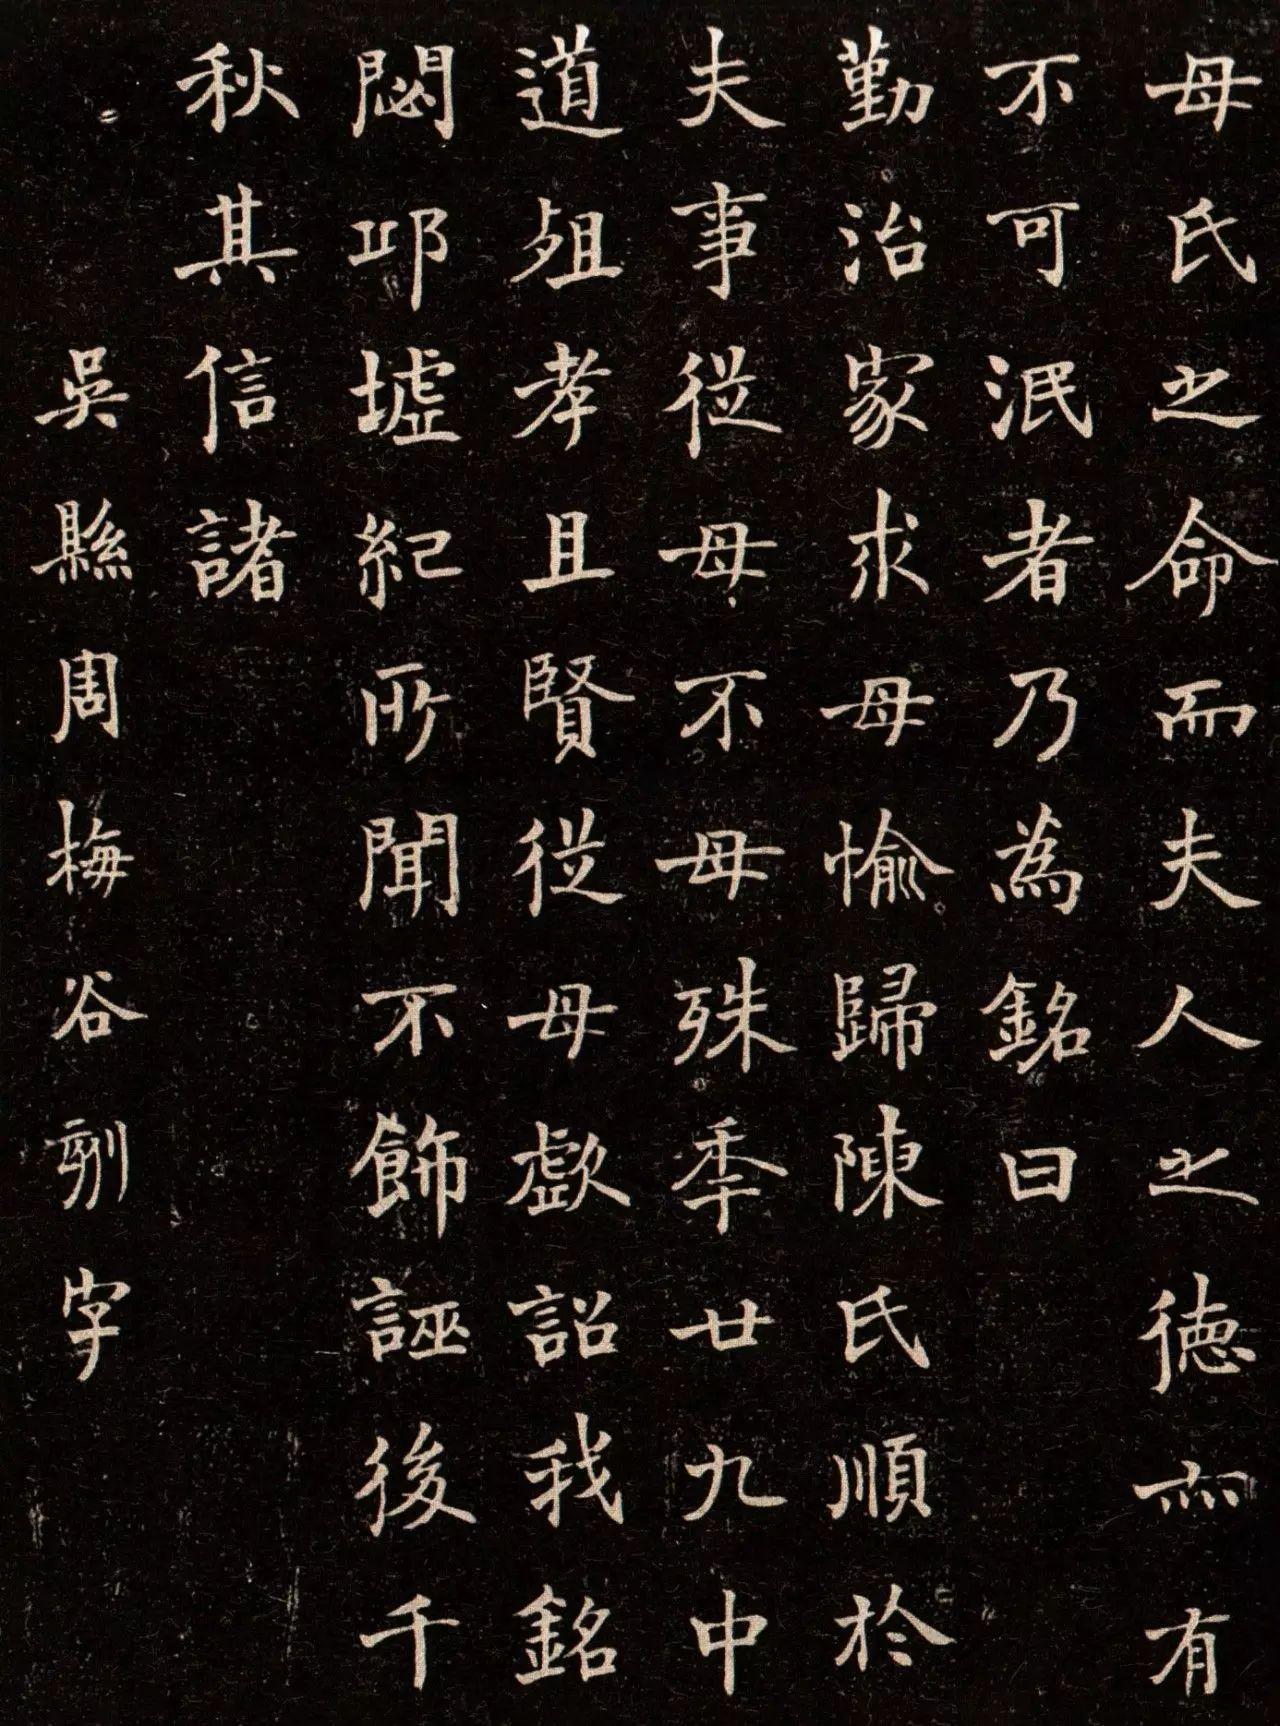 母氏之命而夫人之德亦有
不可泯者乃為銘曰
勤治家求母愉歸陳氏順於
夫事從母不母殊秊廿九中
道殂孝且賢從母歔詔我銘
閟邛墟紀所聞不飾誣後千
秋其信諸
吳縣周梅谷刻字